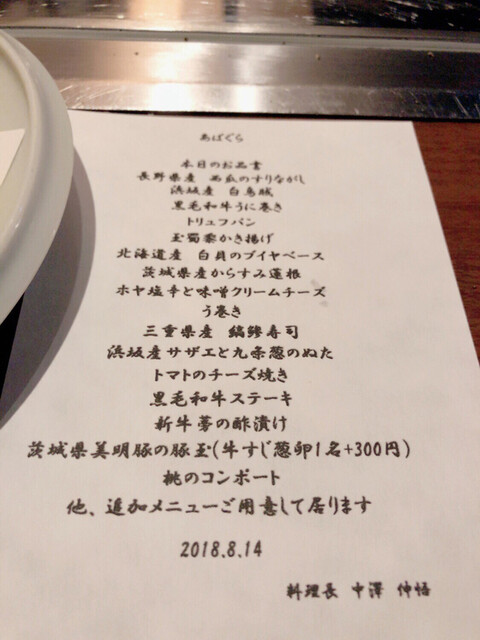 あばぐら
本日のお品書
長野県産 西瓜のすりながし
浜坂産 白烏賊
黒毛和牛うに巻き
トリュフパン
玉蜀黍かき揚げ
北海道産 白貝のブイヤベース
茨城県産からすみ蓮根
ホヤ塩辛と味噌クリームチーズ
う巻き
三重県産 縞鯵寿司
浜坂産サザエと九条葱のぬた
トマトのチーズ焼き
黒毛和牛ステーキ
新牛蒡の酢漬け
茨城県美明豚の豚玉(牛すじ葱卵1名+300円)
桃のコンポート
他、追加メニューご用意して居ります
2018.8.14
料理長 中澤 伸悟